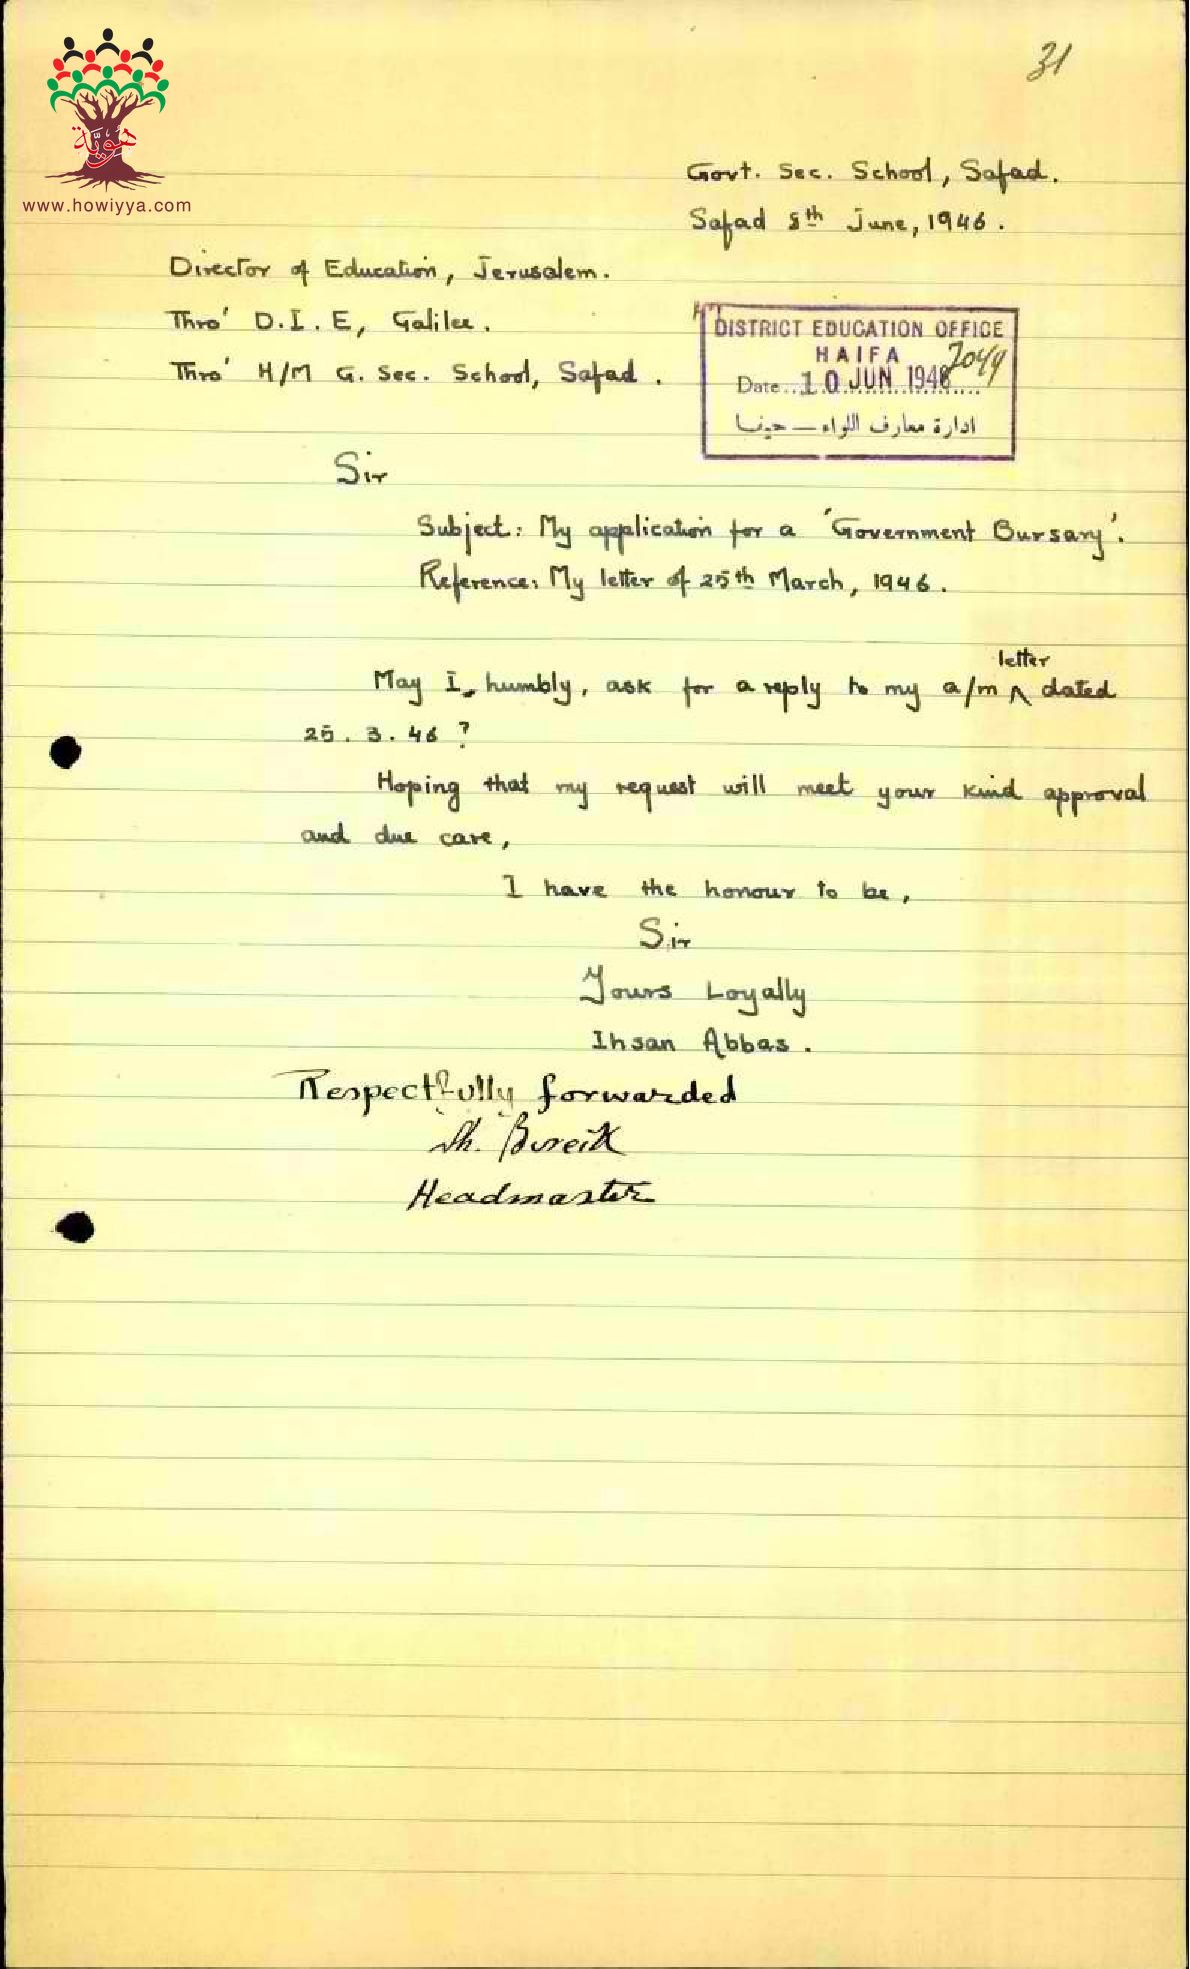 31
هوية
www.howiyya.com
Govt. Sec. School, Safad.
Safad 8th June, 1946.
Director of Education, Jerusalem.
Thro' D.I.E, Galilee.
Thro' H/M G. Sec. School, Safad.
DISTRICT EDUCATION OFFICE
HAIFA
Date 10 JUN 1946
ادارة معارف اللواء — حيفا
Sir
Subject: My application for a 'Government Bursary'.
Reference: My letter of 25th March, 1946.
letter
May I, humbly, ask for a reply to my a/m ^ dated
25.3.46?
Hoping that my request will meet your kind approval
and due care,
I have the honour to be,
Sir
Yours Loyally
Ihsan Abbas.
Respectfully forwarded
Bureik
Headmaster